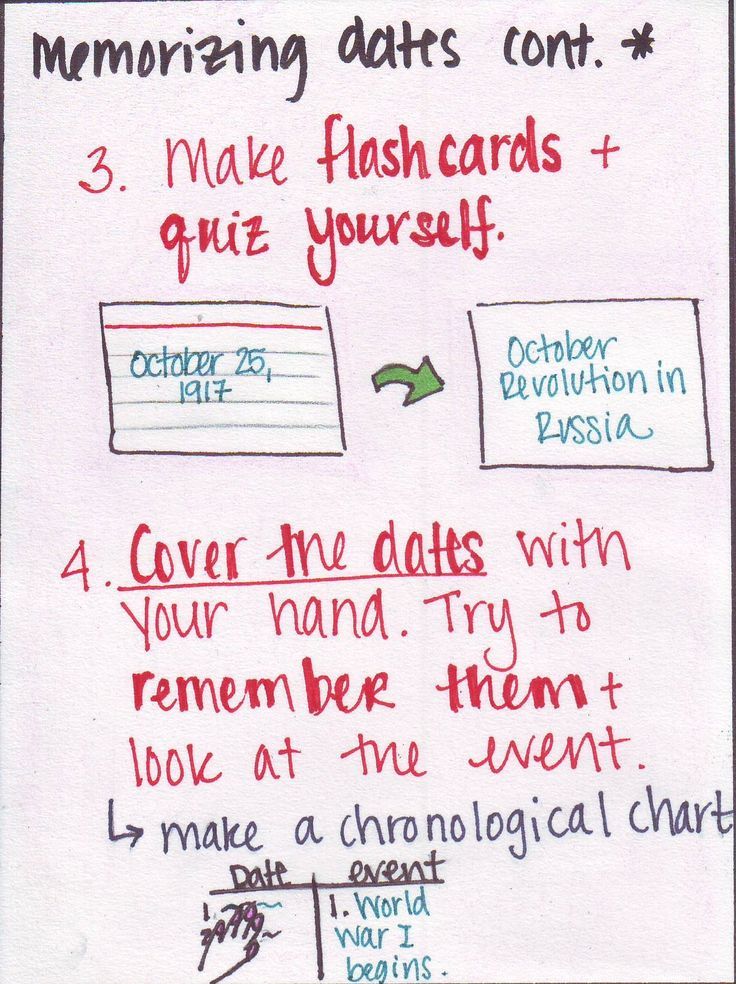 memorizing dates cont. *
3. Make flashcards +
quiz yourself.
October 25,
1917
October
Revolution in
Russia
4. Cover the dates with
your hand. Try to
remember them +
look at the event.
↳ make a chronological chart
Date event
1. 1. World
War I
begins.